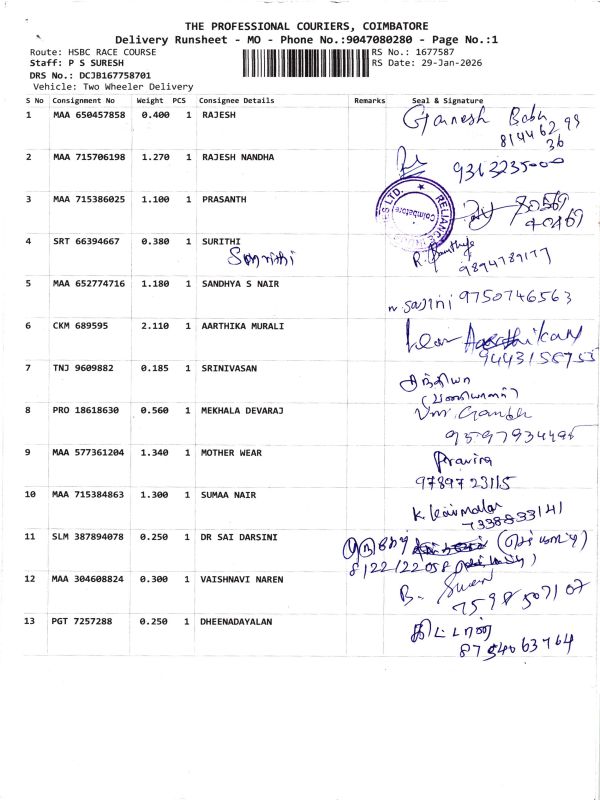 THE PROFESSIONAL COURIERS, COIMBATORE
Delivery Runsheet - MO - Phone No.:9047080280 - Page No.:1
Route: HSBC RACE COURSE RS No.: 1677587
Staff: P S SURESH RS Date: 29-Jan-2026
DRS No.: DCJB167758701
Vehicle: Two Wheeler Delivery
S No Consignment No Weight PCS Consignee Details Remarks Seal & Signature
1 MAA 650457858 0.400 1 RAJESH Ganesh Babu
814462 99
36
2 MAA 715706198 1.270 1 RAJESH NANDHA 9363235000
3 MAA 715386025 1.100 1 PRASANTH
RELIANCE LTD. Coimbatore
4 SRT 66394667 0.380 1 SURITHI
9894789177
5 MAA 652774716 1.180 1 SANDHYA S NAIR
n sajini 9750746563
6 CKM 689595 2.110 1 AARTHIKA MURALI
9443156753
7 TNJ 9609882 0.185 1 SRINIVASAN
8 PRO 18618630 0.560 1 MEKHALA DEVARAJ
9597934495
9 MAA 577361204 1.340 1 MOTHER WEAR Pravina
9789723115
10 MAA 715384863 1.300 1 SUMAA NAIR
K. Kavimalar
7338833141
11 SLM 387894078 0.250 1 DR SAI DARSINI
8122122058
12 MAA 304608824 0.300 1 VAISHNAVI NAREN B.
7598507107
13 PGT 7257288 0.250 1 DHEENADAYALAN
8754063764